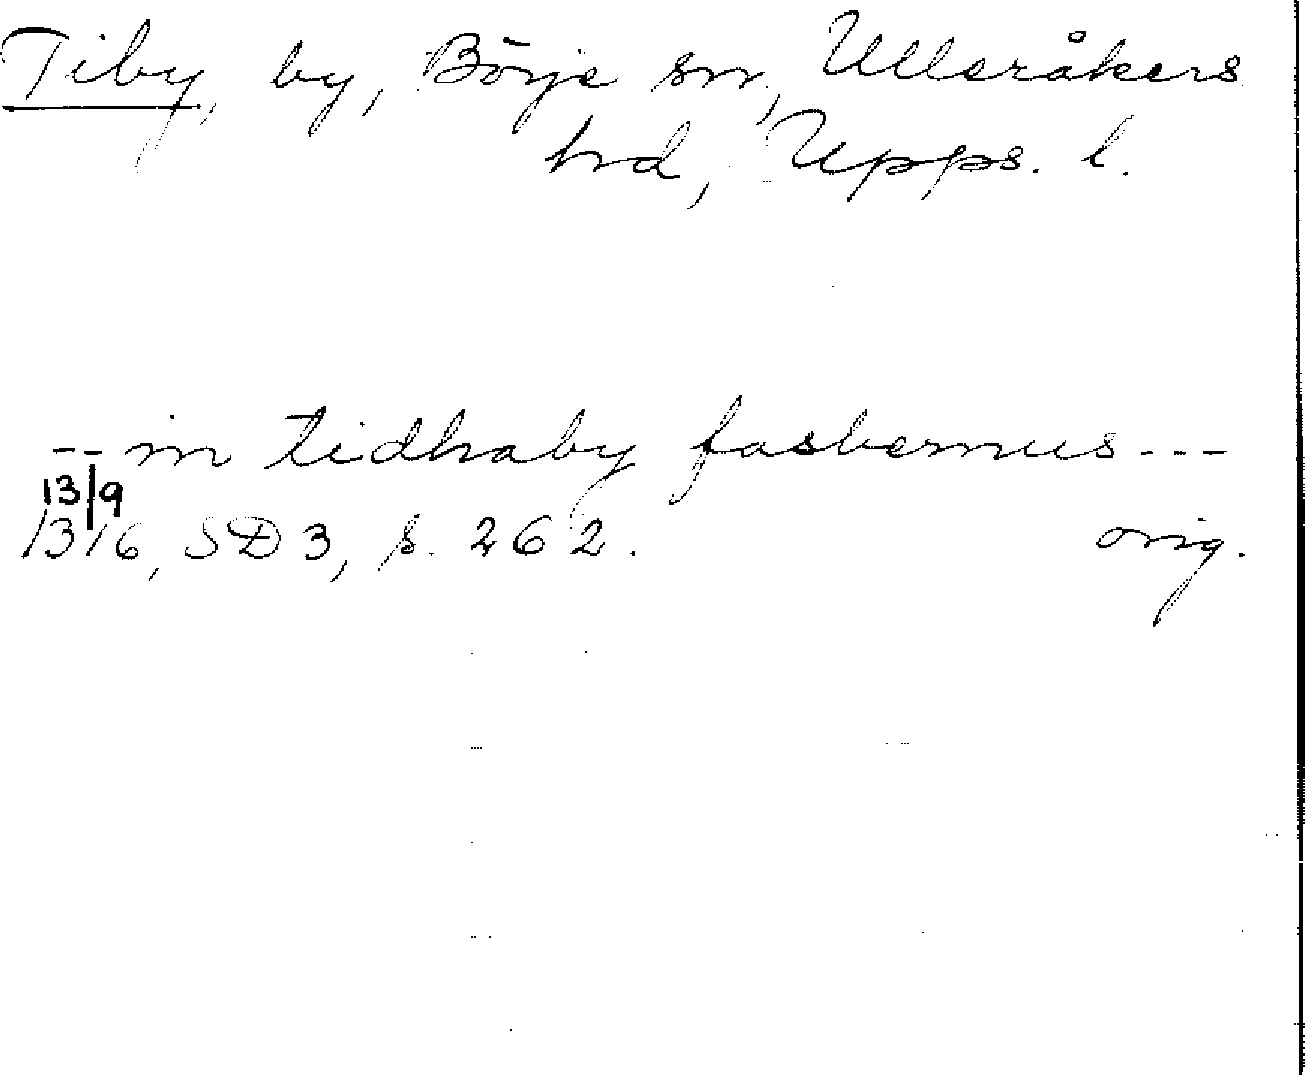 Tiby, by, Börje sn, Ulleråkers
hd, Upps. l.
-- in tidhaby fasbernus ---
13/9
1316, SD 3, s. 262. orig.